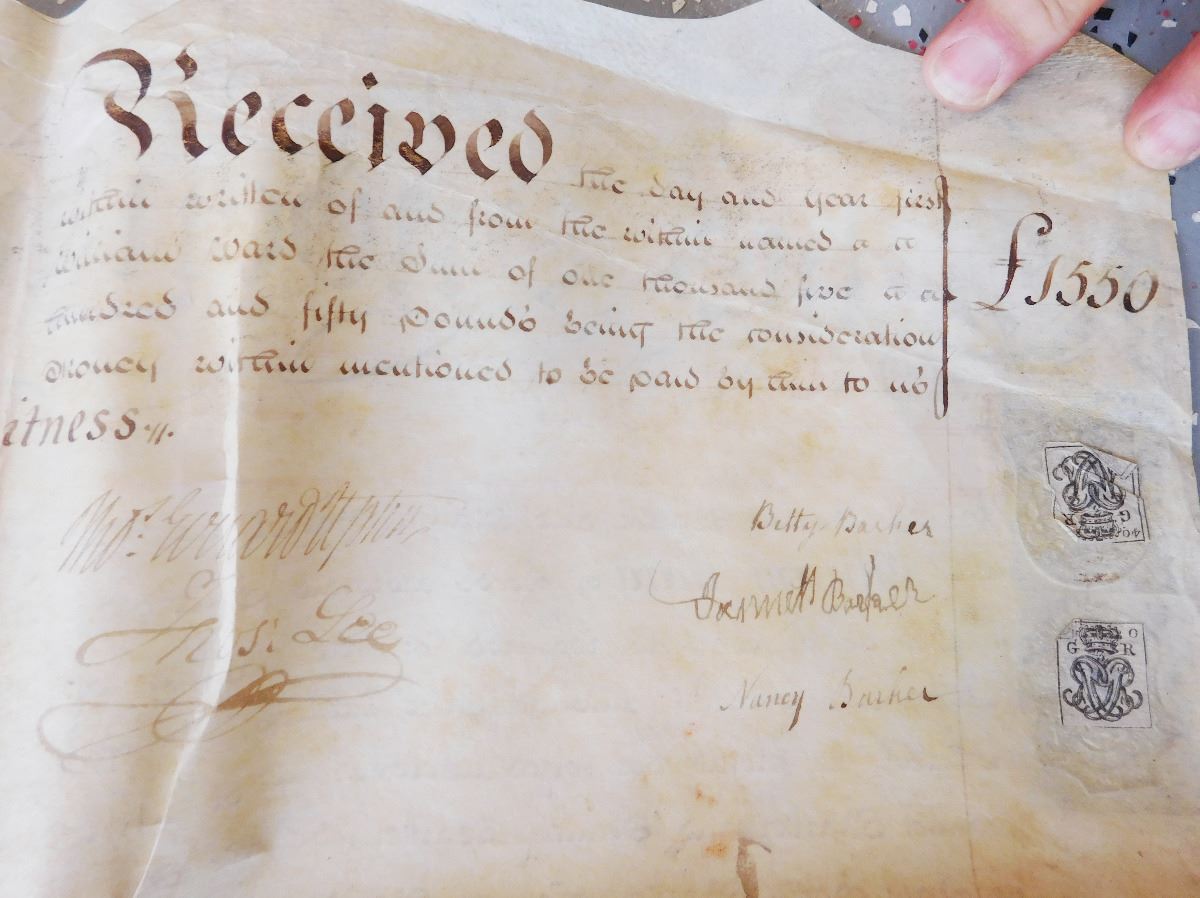 Received the day and year first
within written of and from the within named
William Ward the Sum of one thousand five
hundred and fifty Pounds being the consideration
Money within mentioned to be paid by him to us
£1550
itness
Thos. Lee
Betty Barker
Barker
Nancy Barker
G R
G R